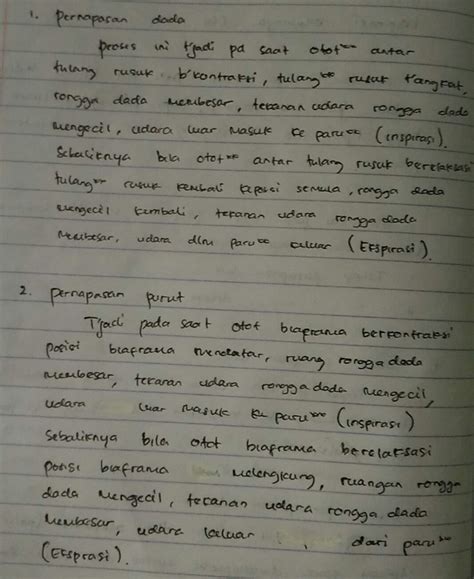 1. Pernapasan dada
proses ini t'jadi pd saat otot²⁰ antar
tulang rusuk b'kontraksi, tulang²⁰ rusuk t'angkat,
rongga dada membesar, tekanan udara rongga dada
mengecil, udara luar masuk ke paru²⁰ (inspirasi).
Sebaliknya bila otot²⁰ antar tulang rusuk berelaksasi
tulang²⁰ rusuk kembali keposisi semula, rongga dada
mengecil kembali, tekanan udara rongga dada
membesar, udara dlm paru²⁰ keluar (Ekspirasi).
2. pernapasan perut
T'jadi pada saat otot biaframa berkontraksi
posisi biaframa mendatar, ruang rongga dada
membesar, tekanan udara rongga dada mengecil,
udara luar masuk ke paru²⁰ (inspirasi)
Sebaliknya bila otot biaframa berelaksasi
posisi biaframa melengkung, ruangan rongga
dada mengecil, tekanan udara rongga dada
membesar, udara keluar, dari paru²⁰
(Ekspirasi).